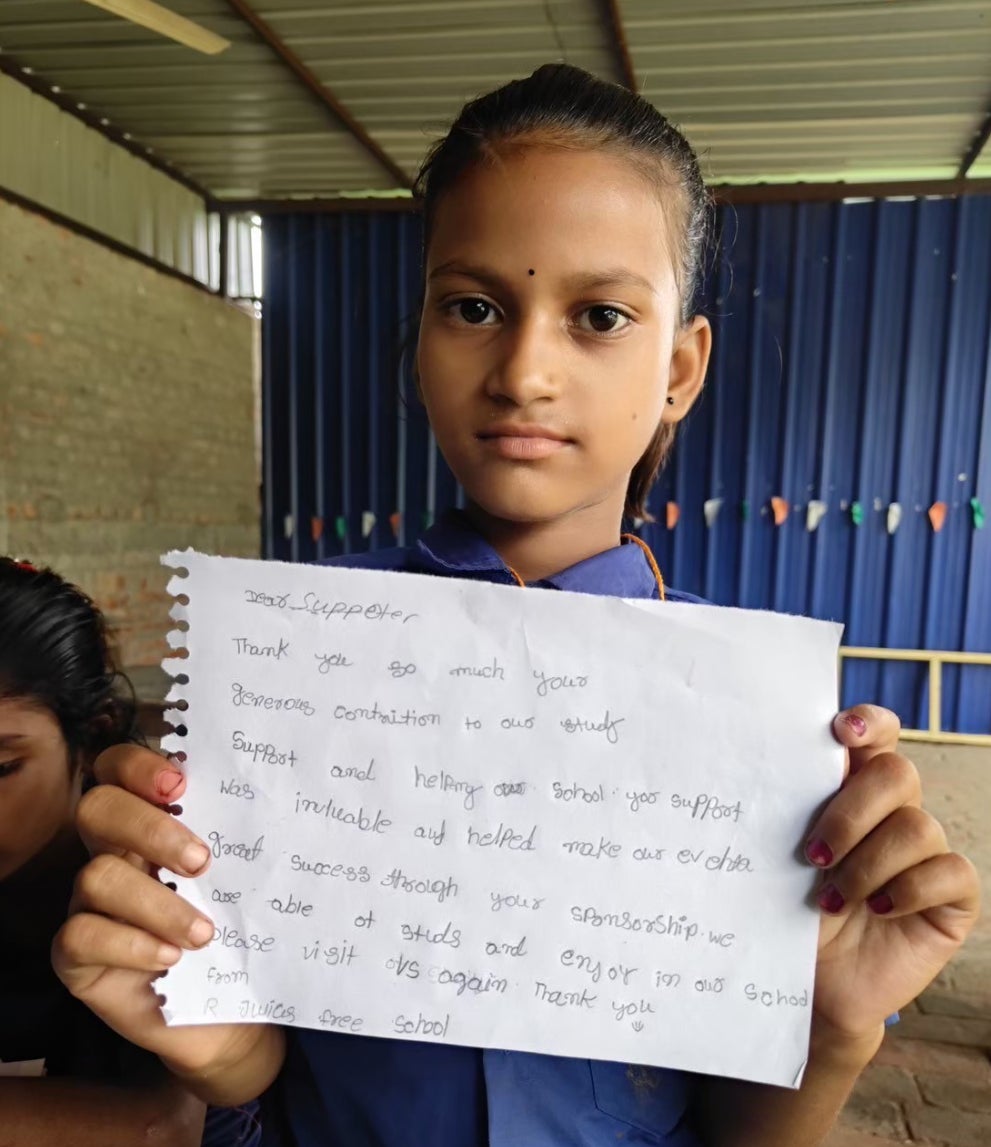 Dear Suppeter
Thank you so much your
generous contrition to our study
Support and helping our school. you support
was invluable and helped make our evehta
great success through your sponsorship. we
are able of studs and enjoy in our school
please visit us again. Thank you
from
R Juices free School